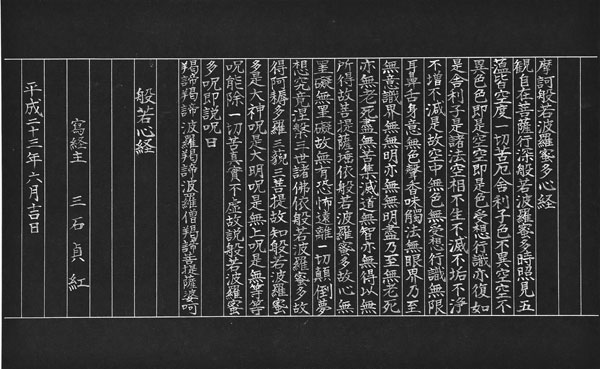 摩訶般若波羅蜜多心経
觀自在菩薩行深般若波羅蜜多時照見五
蘊皆空度一切苦厄舎利子色不異空空不
異色色即是空空即是色受想行識亦復如
是舎利子是諸法空相不生不滅不垢不浄
不増不減是故空中無色無受想行識無眼
耳鼻舌身意無色聲香味觸法無眼界乃至
無意識界無無明亦無無明盡乃至無老死
亦無老死盡無苦集滅道無智亦無得以無
所得故菩提薩埵依般若波羅蜜多故心無
罣礙無罣礙故無有恐怖遠離一切顛倒夢
想究竟涅槃三世諸佛依般若波羅蜜多故
得阿耨多羅三藐三菩提故知般若波羅蜜
多是大神呪是大明呪是無上呪是無等等
呪能除一切苦真實不虚故説般若波羅蜜
多呪即説呪曰
羯諦羯諦波羅羯諦波羅僧羯諦菩提薩婆訶
般若心経
寫経主 三石貞紅
平成二十三年六月吉日